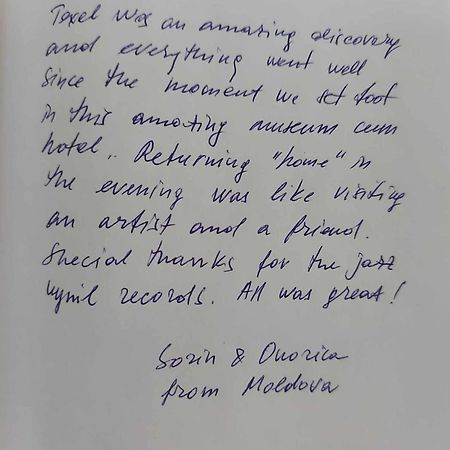 Texel was an amazing discovery
and everything went well
since the moment we set foot
in this amazing museum cum
hotel.. Returning "home" in
the evening was like visiting
an artist and a friend.
Special thanks for the jazz
vynil records. All was great!
Sorin & Onorica
from Moldova